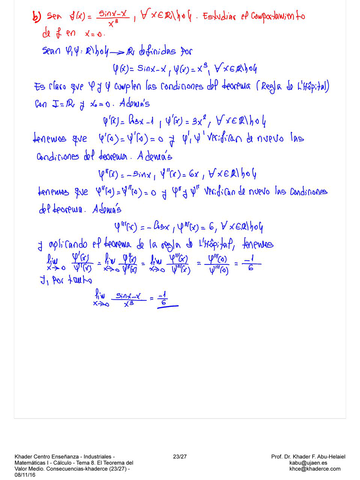 b) Sea f(x) = (sin x - x)/x³, ∀x∈ℝ\{0}. Estudiar el comportamiento
de f en x=0.
Sean φ,ψ: ℝ\{0} → ℝ definidas por
φ(x) = sin x - x, ψ(x) = x³, ∀x∈ℝ\{0}
Es claro que φ y ψ cumplen las condiciones del teorema (Regla de L'Hôpital)
con I=ℝ, y x₀=0. Además
φ'(x) = cos x - 1, ψ'(x) = 3x², ∀x∈ℝ\{0}
tenemos que φ'(0) = ψ'(0) = 0 y φ', ψ' verifican de nuevo las
condiciones del teorema. Además
φ''(x) = -sin x, ψ''(x) = 6x, ∀x∈ℝ\{0}
tenemos que φ''(0) = ψ''(0) = 0 y φ'' y ψ'' verifican de nuevo las condiciones
del teorema. Además
φ'''(x) = -cos x, ψ'''(x) = 6, ∀x∈ℝ\{0}
y aplicando el teorema de la regla de L'Hôpital, tenemos
lim x→0 φ'(x)/ψ'(x) = lim x→0 φ''(x)/ψ''(x) = lim x→0 φ'''(x)/ψ'''(x) = φ'''(0)/ψ'''(0) = -1/6
y, por tanto
lim x→0 (sin x - x)/x³ = -1/6
Khader Centro Enseñanza - Industriales -
Matemáticas I - Cálculo - Tema 8. El Teorema del
Valor Medio. Consecuencias-khaderce (23/27) -
08/11/16
23/27
Prof. Dr. Khader F. Abu-Helaiel
kabu@ujaen.es
khce@khaderce.com